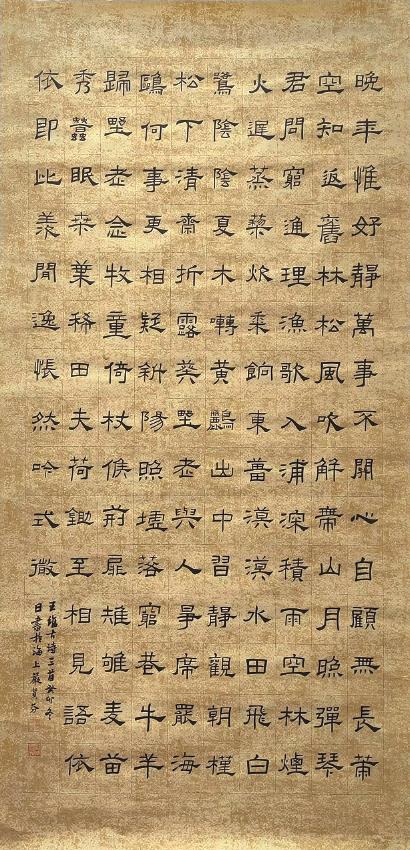 晚年惟好靜萬事不關心自顧無長策
空知返舊林松風吹解帶山月照彈琴
君問窮通理漁歌入浦深積雨空林煙
火遲蒸藜炊黍餉東菑漠漠水田飛白
鷺陰陰夏木囀黃鸝山中習靜觀朝槿
松下清齋折露葵野老與人爭席罷海
鷗何事更相疑斜陽照墟落窮巷牛羊
歸野老念牧童倚杖候荊扉雉雊麥苗
秀蠶眠桒葉稀田夫荷鋤至相見語依
依即此羨閒逸悵然吟式微
王維古詩三首癸卯冬
日書於海上嚴